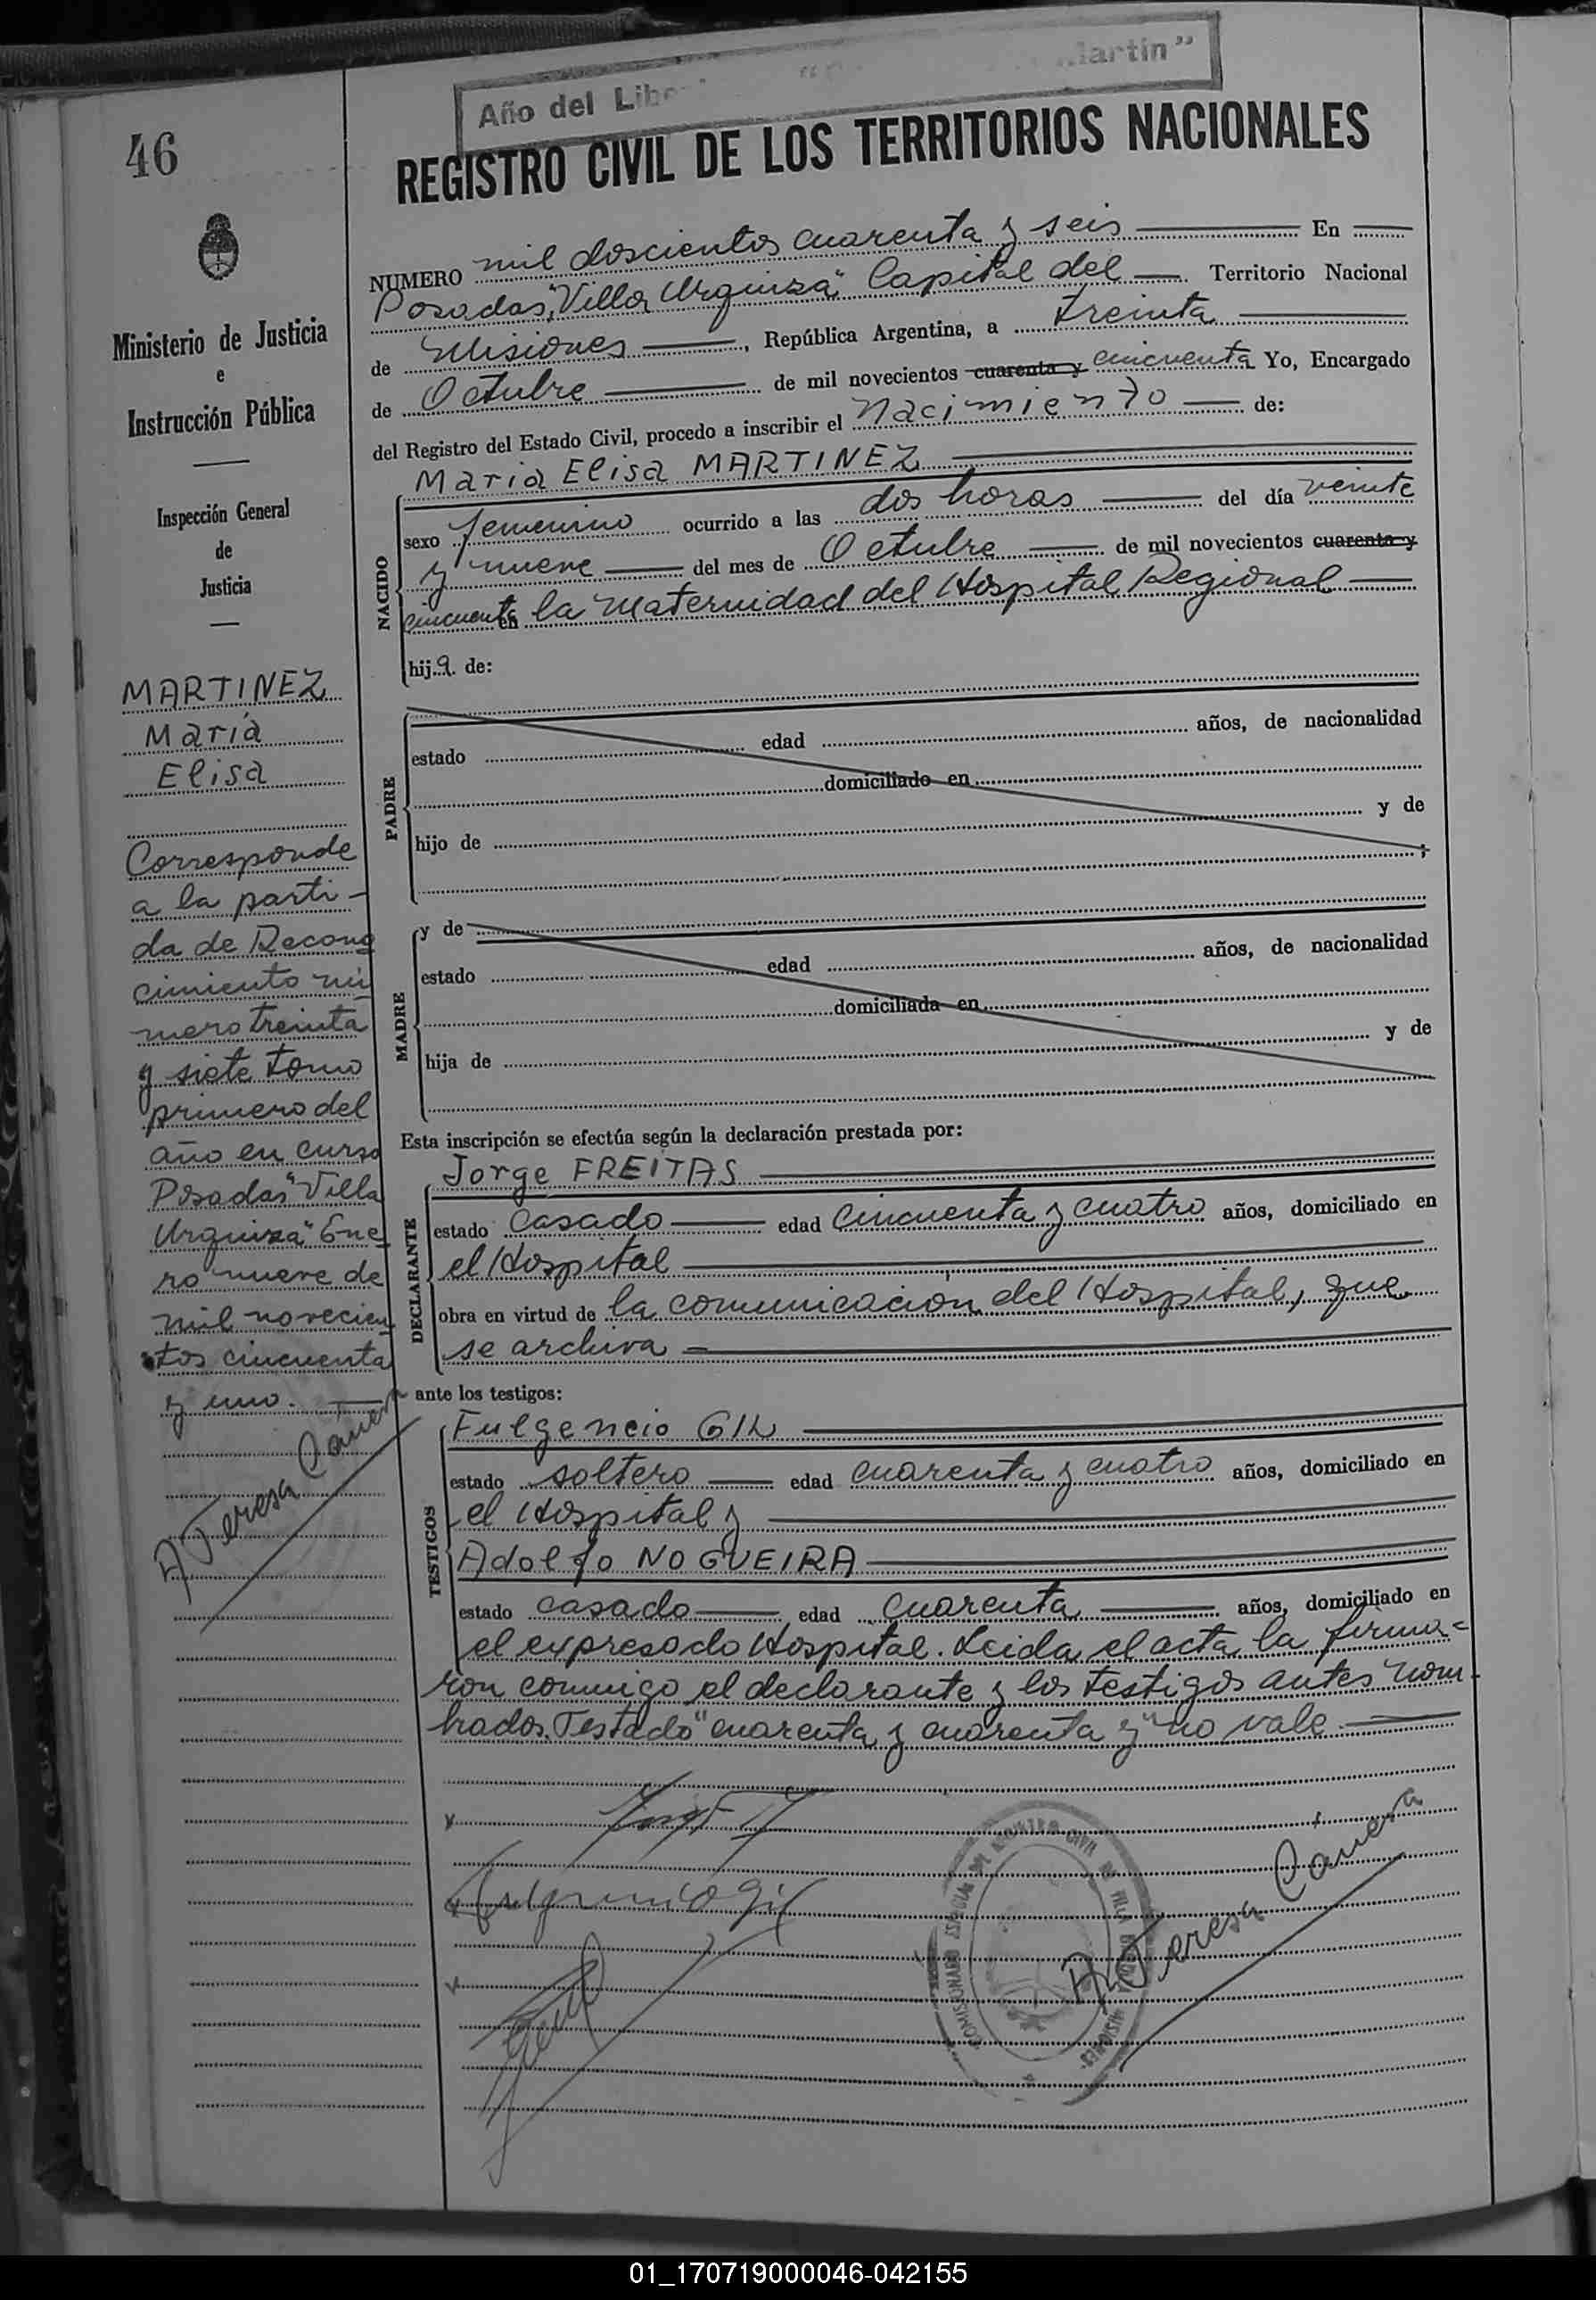 Año del Libe "        Martín"
46
REGISTRO CIVIL DE LOS TERRITORIOS NACIONALES
NUMERO mil doscientos cuarenta y seis En
Posadas, "Villa Urquiza" Capital del Territorio Nacional
de Misiones, República Argentina, a treinta
de Octubre de mil novecientos cuarenta y cincuenta Yo, Encargado
del Registro del Estado Civil, procedo a inscribir el Nacimiento de:
Maria Elisa MARTINEZ
NACIDO
sexo femenino ocurrido a las dos horas del día veinte
y nueve del mes de Octubre de mil novecientos cuarenta y
cincuenta en la Maternidad del Hospital Regional
hija de:
PADRE
estado edad años, de nacionalidad
domiciliado en
hijo de y de
;
MADRE
y de
estado edad años, de nacionalidad
domiciliada en
hija de y de
Esta inscripción se efectúa según la declaración prestada por:
DECLARANTE
Jorge FREITAS
estado casado edad cincuenta y cuatro años, domiciliado en
el Hospital
obra en virtud de la comunicación del Hospital, que
se archiva
ante los testigos:
TESTIGOS
Fulgencio GIL
estado soltero edad cuarenta y cuatro años, domiciliado en
el Hospital y
Adolfo NOGUEIRA
estado casado edad cuarenta años, domiciliado en
el expresado Hospital. Leida el acta la firma=
ron conmigo el declarante y los testigos antes nom-
brados. Testado "cuarenta y cuarenta y" no vale.
Fulgencio Gil
A Teresa Cánera
COMISIONARIO ESPECIAL DE REGISTRO CIVIL DE VILLA URQUIZA MISIONES
Ministerio de Justicia
e
Instrucción Pública
Inspección General
de
Justicia
MARTINEZ
María
Elisa
Corresponde
a la parti-
da de Recono
cimiento nú
mero treinta
y siete tomo
primero del
año en curso
Posadas "Villa
Urquiza" Ene
ro nueve de
mil novecien
tos cincuenta
y uno.
A Teresa Cánera
01_170719000046-042155